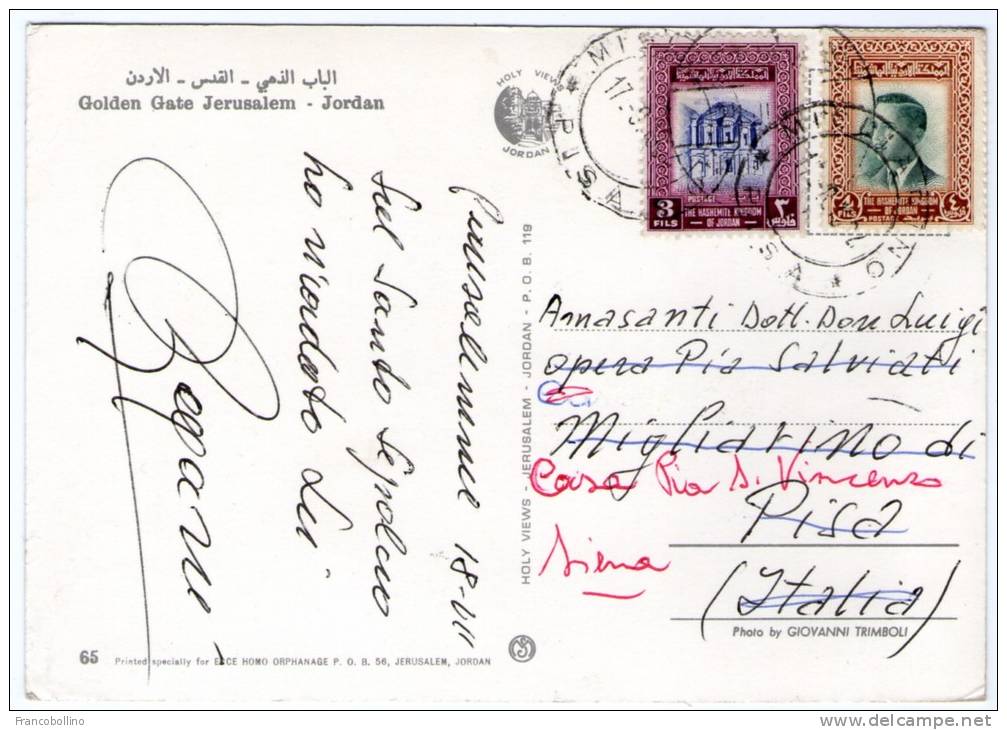 الباب الذهبي - القدس - الاردن
Golden Gate Jerusalem - Jordan
HOLY VIEWS
JORDAN
Gerusalemme 18-VII
Sul Santo Sepolcro
ho ricordato Lei
HOLY VIEWS - JERUSALEM - JORDAN - P. O. B. 119
المملكة الاردنية الهاشمية
3
FILS
POSTAGE
THE HASHEMITE KINGDOM
OF JORDAN
٣
فلوس
المملكة الاردنية الهاشمية
4
FILS
THE HASHEMITE KINGDOM
OF JORDAN
POSTAGE
٤
فلوس
PISA
Annasanti Dott. Don Luigi
opera Pia Salviati
Migliarino di
Casa Pia S. Vincenzo
Pisa
Siena
(Italia)
Photo by GIOVANNI TRIMBOLI
65 Printed specially for ECCE HOMO ORPHANAGE P. O. B. 56, JERUSALEM, JORDAN
Francobollino
www.delcampe.net